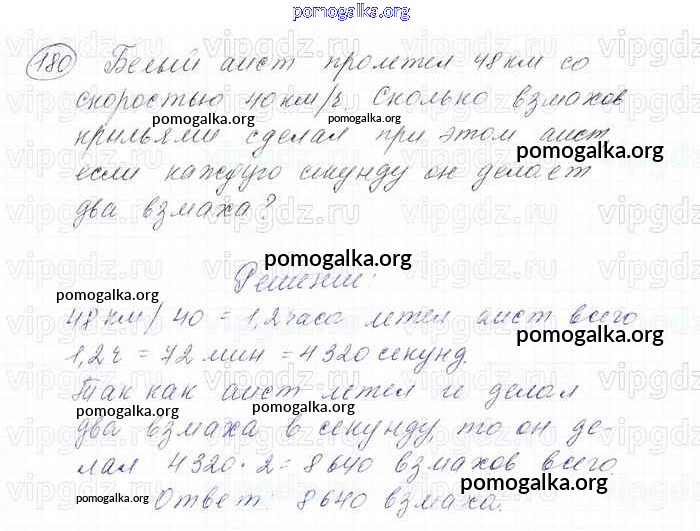 pomogalka.org
180 Белый аист пролетел 48 км со
скоростью 40 км/ч. Сколько взмахов
pomogalka.org pomogalka.org
крыльями сделал при этом аист,
pomogalka.org
если каждую секунду он делает
два взмаха?
pomogalka.org
Решение:
pomogalka.org
48 км/40 = 1,2 часа летел аист всего
pomogalka.org
1,2 ч = 72 мин = 4320 секунд.
Так как аист летел и делал
pomogalka.org pomogalka.org
два взмаха в секунду, то он де-
лал 4320 · 2 = 8640 взмахов всего.
pomogalka.org pomogalka.org
Ответ: 8640 взмаха.
vipgdz.ru